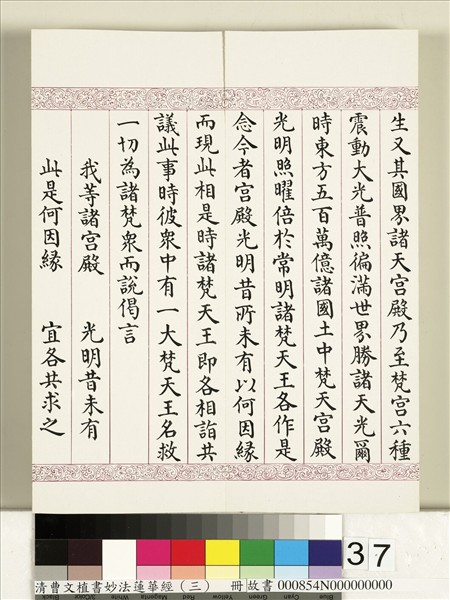 生又其國界諸天宮殿乃至梵宮六種
震動大光普照徧滿世界勝諸天光爾
時東方五百萬億諸國土中梵天宮殿
光明照曜倍於常明諸梵天王各作是
念今者宮殿光明昔所未有以何因緣
而現此相是時諸梵天王即各相詣共
議此事時彼眾中有一大梵天王名救
一切為諸梵眾而說偈言
我等諸宮殿 光明昔未有
此是何因緣 宜各共求之
37
清曹文植書妙法蓮華經(三) 冊 故書 000854N000000000
Black 3/Color White Magenta Red Yellow Green Cyan Blue